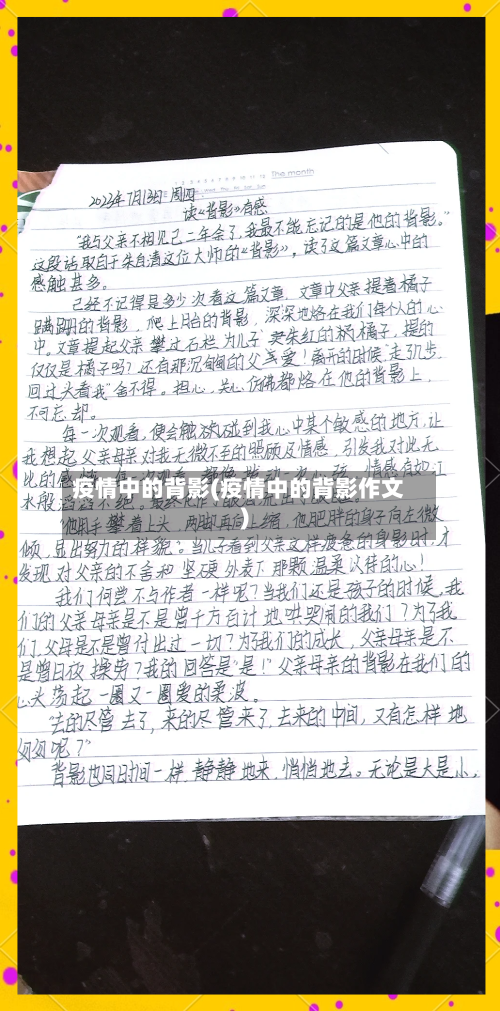 The month
2023年7月13日 周四
读《背影》有感
"我与父亲不相见已二年余了,我最不能忘记的是他的背影。"
这段话取自于朱自清这位大师的《背影》。读了这篇文章心中的
感触甚多。
已经不记得是多少次看这篇文章,文章中父亲提着橘子
蹒跚的背影,爬上月台的背影,深深地烙在我们每个人的心
中。文章提起父亲攀过石栏为儿子买朱红的橘子,提的
仅仅是橘子吗?还有那沉甸甸的父爱!离开的时候,走了几步,
回过头看我"舍不得。担心,关心,仿佛都烙在他的背影上,
不可忘却。
每一次观看,便会触碰到我心中某个敏感的地方,让
我想起父亲母亲对我无微不至的照顾及情感,引发我对此无
比的感
情感有如江
疫情中的背影(疫情中的背影作文
水般滔滔不绝。
)
他用手攀着上头,两脚再向上缩,他肥胖的身子向左微
倾,显出努力的样貌"。当儿子看到父亲这样疲惫的身影时,才
发现对父亲的不舍和坚硬外表下那颗温柔以待的心!
我们何尝不与作者一样呢?当我们还是孩子的时候,我
们的父亲母亲是不是曾千方百计地哄哭闹的我们?为了我
们,父母是不是曾付出过一切?为了我们的成长,父亲母亲是不
是曾日夜操劳?我的回答是"是!"父亲母亲的背影在我们的
心头荡起一圈又一圈爱的柔波。
"去的尽管去了,来的尽管来了,去来的中间,又有怎样地
匆匆呢?"
背影也同时间一样,静静地来,悄悄地去。无论是大是小,